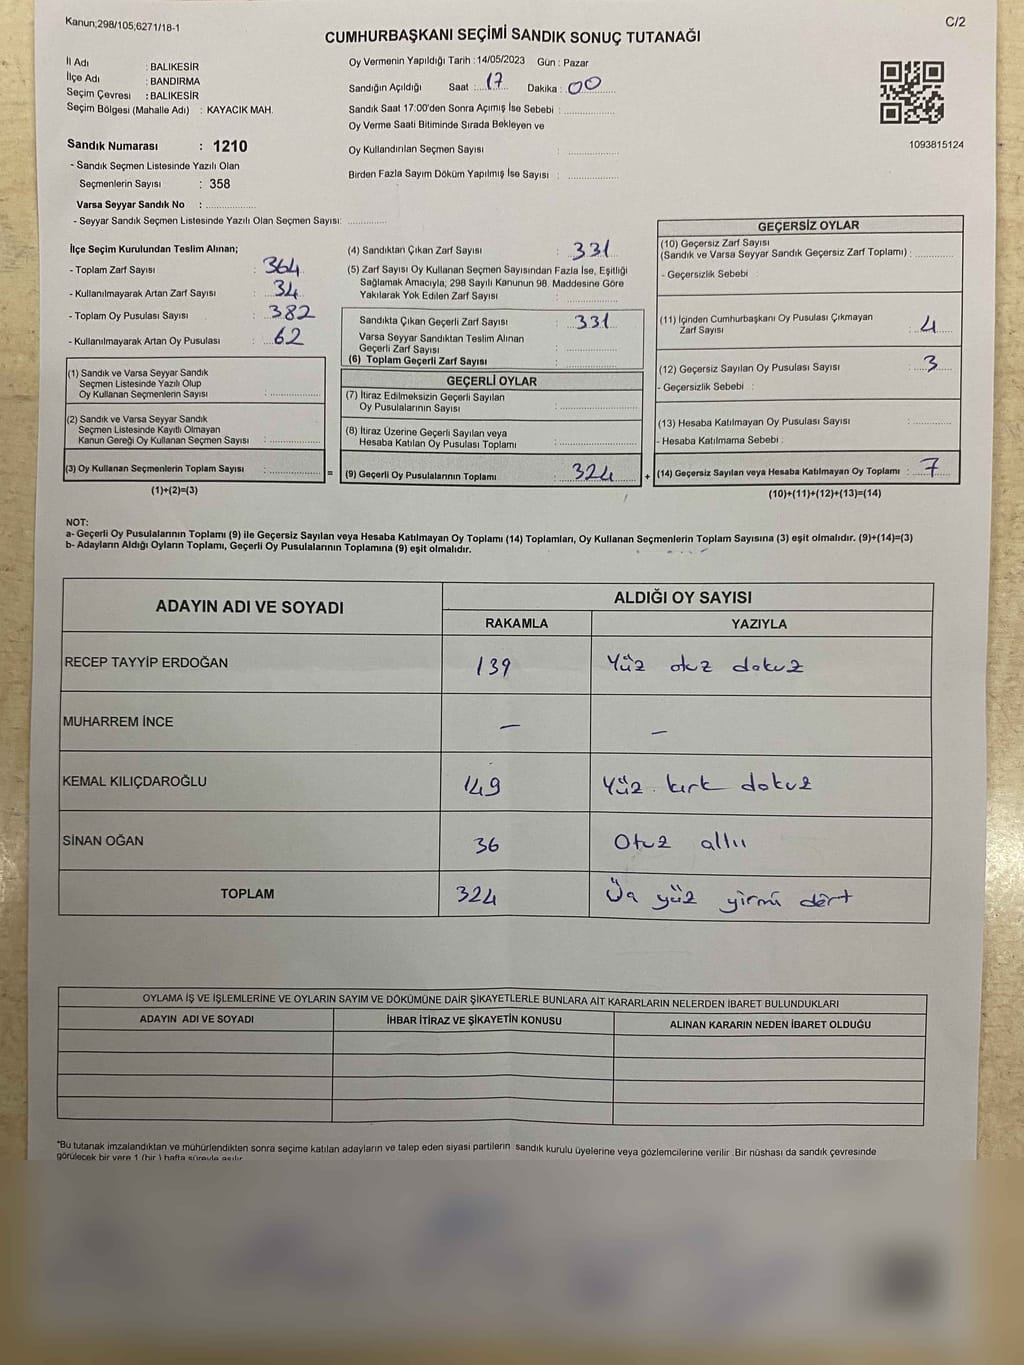 Kanun;298/105,6271/18-1
C/2
CUMHURBAŞKANI SEÇİMİ SANDIK SONUÇ TUTANAĞI
İl Adı : BALIKESİR
İlçe Adı : BANDIRMA
Seçim Çevresi : BALIKESİR
Seçim Bölgesi (Mahalle Adı) : KAYACIK MAH.
Oy Vermenin Yapıldığı Tarih : 14/05/2023 Gün : Pazar
Sandığın Açıldığı Saat : 17 Dakika : 00
Sandık Saat 17:00'den Sonra Açımış İse Sebebi :
Oy Verme Saati Bitiminde Sırada Bekleyen ve
Oy Kullandırılan Seçmen Sayısı :
Birden Fazla Sayım Döküm Yapılmış İse Sayısı :
1093815124
Sandık Numarası : 1210
- Sandık Seçmen Listesinde Yazılı Olan
Seçmenlerin Sayısı : 358
Varsa Seyyar Sandık No :
- Seyyar Sandık Seçmen Listesinde Yazılı Olan Seçmen Sayısı:
İlçe Seçim Kurulundan Teslim Alınan;
- Toplam Zarf Sayısı : 364
- Kullanılmayarak Artan Zarf Sayısı : 34
- Toplam Oy Pusulası Sayısı : 382
- Kullanılmayarak Artan Oy Pusulası : 62
(1) Sandık ve Varsa Seyyar Sandık
Seçmen Listesinde Yazılı Olup
Oy Kullanan Seçmenlerin Sayısı :
(2) Sandık ve Varsa Seyyar Sandık
Seçmen Listesinde Kayıtlı Olmayan
Kanun Gereği Oy Kullanan Seçmen Sayısı :
(3) Oy Kullanan Seçmenlerin Toplam Sayısı :
(1)+(2)=(3)
(4) Sandıktan Çıkan Zarf Sayısı : 331
(5) Zarf Sayısı Oy Kullanan Seçmen Sayısından Fazla İse, Eşitliği
Sağlamak Amacıyla, 298 Sayılı Kanunun 98. Maddesine Göre
Yakılarak Yok Edilen Zarf Sayısı :
Sandıkta Çıkan Geçerli Zarf Sayısı : 331
Varsa Seyyar Sandıktan Teslim Alınan
Geçerli Zarf Sayısı :
(6) Toplam Geçerli Zarf Sayısı :
GEÇERLİ OYLAR
(7) İtiraz Edilmeksizin Geçerli Sayılan
Oy Pusulalarının Sayısı :
(8) İtiraz Üzerine Geçerli Sayılan veya
Hesaba Katılan Oy Pusulası Toplamı :
= (9) Geçerli Oy Pusulalarının Toplamı : 324 +
GEÇERSİZ OYLAR
(10) Geçersiz Zarf Sayısı
(Sandık ve Varsa Seyyar Sandık Geçersiz Zarf Toplamı) :
- Geçersizlik Sebebi :
(11) İçinden Cumhurbaşkanı Oy Pusulası Çıkmayan
Zarf Sayısı : 4
(12) Geçersiz Sayılan Oy Pusulası Sayısı : 3
- Geçersizlik Sebebi :
(13) Hesaba Katılmayan Oy Pusulası Sayısı :
- Hesaba Katılmama Sebebi :
(14) Geçersiz Sayılan veya Hesaba Katılmayan Oy Toplamı : 7
(10)+(11)+(12)+(13)=(14)
NOT:
a- Geçerli Oy Pusulalarının Toplamı (9) ile Geçersiz Sayılan veya Hesaba Katılmayan Oy Toplamı (14) Toplamları, Oy Kullanan Seçmenlerin Toplam Sayısına (3) eşit olmalıdır. (9)+(14)=(3)
b- Adayların Aldığı Oyların Toplamı, Geçerli Oy Pusulalarının Toplamına (9) eşit olmalıdır.
ADAYIN ADI VE SOYADI
ALDIĞI OY SAYISI
RAKAMLA YAZIYLA
RECEP TAYYİP ERDOĞAN 139 Yüz otuz dokuz
MUHARREM İNCE – –
KEMAL KILIÇDAROĞLU 149 Yüz kırk dokuz
SİNAN OĞAN 36 Otuz altı
TOPLAM 324 Üç yüz yirmi dört
OYLAMA İŞ VE İŞLEMLERİNE VE OYLARIN SAYIM VE DÖKÜMÜNE DAİR ŞİKAYETLERLE BUNLARA AİT KARARLARIN NELERDEN İBARET BULUNDUKLARI
ADAYIN ADI VE SOYADI İHBAR İTİRAZ VE ŞİKAYETİN KONUSU ALINAN KARARIN NEDEN İBARET OLDUĞU
*Bu tutanak imzalandıktan ve mühürlendikten sonra seçime katılan adayların ve talep eden siyasi partilerin sandık kurulu üyelerine veya gözlemcilerine verilir .Bir nüshası da sandık çevresinde
görülecek bir yere 1 (bir ) hafta süreyle asılır.